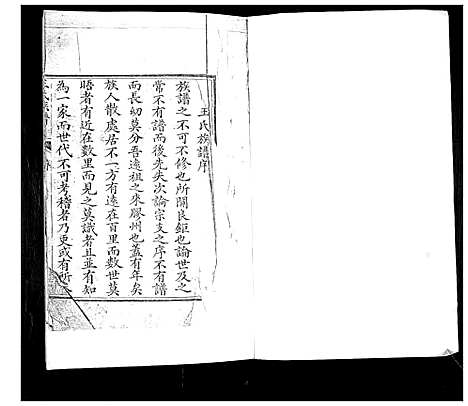 王氏族譜序
族譜之不可不修也所關良鉅也論世及之
常不有譜而後先失次論宗支之序不有譜
而長幼莫分吾遠祖之來膠州也蓋有年矣
族人散處居不一方有在百里而數世莫
晤者有近在數里而見之莫識者且並有知
為一家而世代不可考稽者乃更或有所